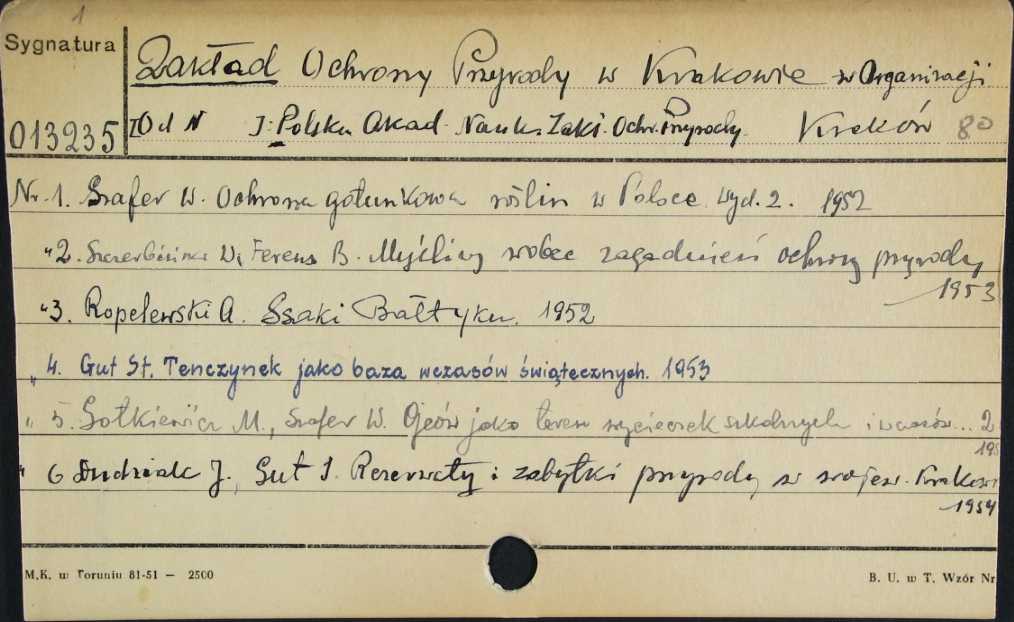 1
Sygnatura
Zakład Ochrony Przyrody w Krakowie w Organizacji
013235 Od N I: Polska Akad. Nauk. Zakł. Ochr. Przyrody. Kraków 80
Nr. 1. Szafer W. Ochrona gatunkowa roślin w Polsce. Wyd. 2. 1952
"2. W, Ferens B. Myśliwy wobec zagadnień ochrony przyrody
1953
"3. Ropelewski A. Ssaki Bałtyku. 1952
" 4. Gut St. Tenczynek jako baza wczasów świątecznych. 1953
" 5. Gotkiewicz M., Szafer W. Ojców jako teren wycieczek szkolnych i wczasów... 2
195
" 6 Dudziak J., Gut S. Rezerwaty i zabytki przyrody w wojew. Krakow
1954
M.K. w Toruniu 81-51 — 2500
B. U. w T. Wzór Nr